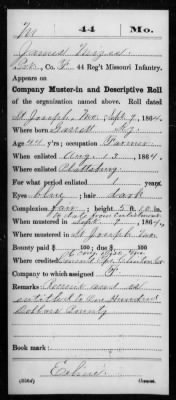 M | 44 | Mo.
James
Pvt., Co. F, 44 Reg't Missouri Infantry.
Appears on
Company Muster-in and Descriptive Roll
of the organization named above. Roll dated
St Joseph, Mo. Sept. 7, 1864.
Where born Garrett Ky
Age 44 y'rs; occupation Farmer
When enlisted Aug. 13, 1864.
Where enlisted Plattsburg
For what period enlisted 1 years.
Eyes blue; hair dark
Complexion fair; height 5 ft. 10 in.
When mustered in Sept. 7, 1864.
Where mustered in St Joseph, Mo.
Bounty paid $ 100; due $ 100
Where credited
Company to which assigned F
Remarks: as
entitled to One Hundred
Dollars bounty
Book mark:
(356d)
Copyist.